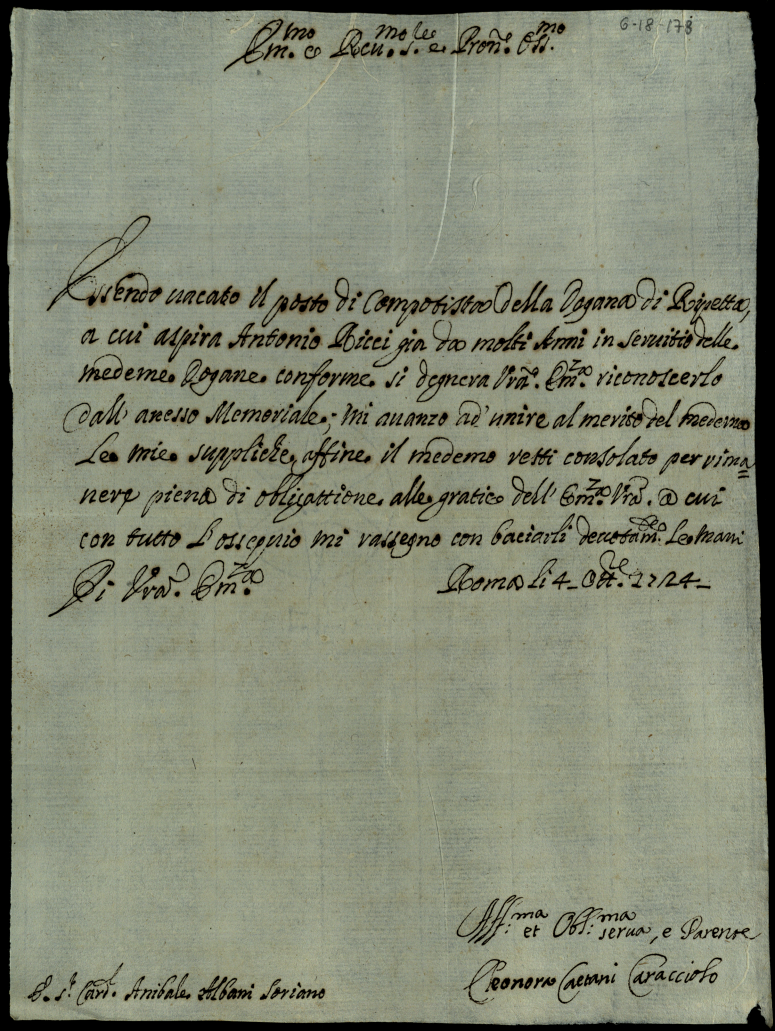 6-18-178
Em.mo e Reu.mo S.le e Pron. Oss.mo
Essendo uacato il posto di Compotista della Dogana di Ripetta,
a cui aspira Antonio Ricci già da molti Anni in seruitio delle
medeme Dogane conforme si degnerà Vra. Em.za riconoscerlo
dall' anesso Memoriale; mi auanzo ad' unire al merito del medemo
Le mie suppliche, affine il medemo resti consolato per rima=
nere piena di obligattione alle gratie dell' Em.za Vra. a cui
con tutto L'ossequio mi rassegno con baciarli deuotam.te Le Mani
Di Vra. Em.za
Roma li 4 Ott.re 1724
Aff.ma et Obl.ma serua, e Parente
Eleonora Caetani Caracciolo
S.r Card.l Anibale Albani Soriano